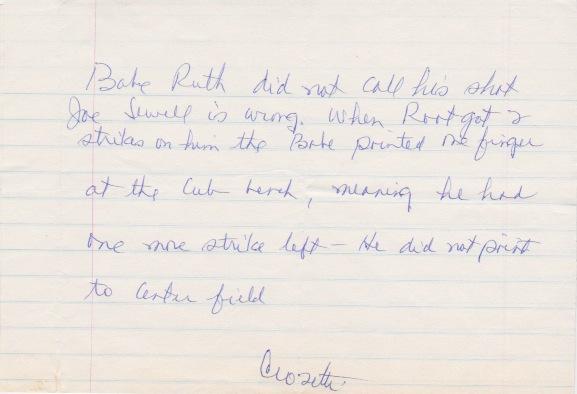 Babe Ruth did not call his shot
Joe Sewell is wrong. When Root got 2
strikes on him the Babe pointed one finger
at the Cub bench, meaning he had
one more strike left – He did not point
to center field
Crosetti